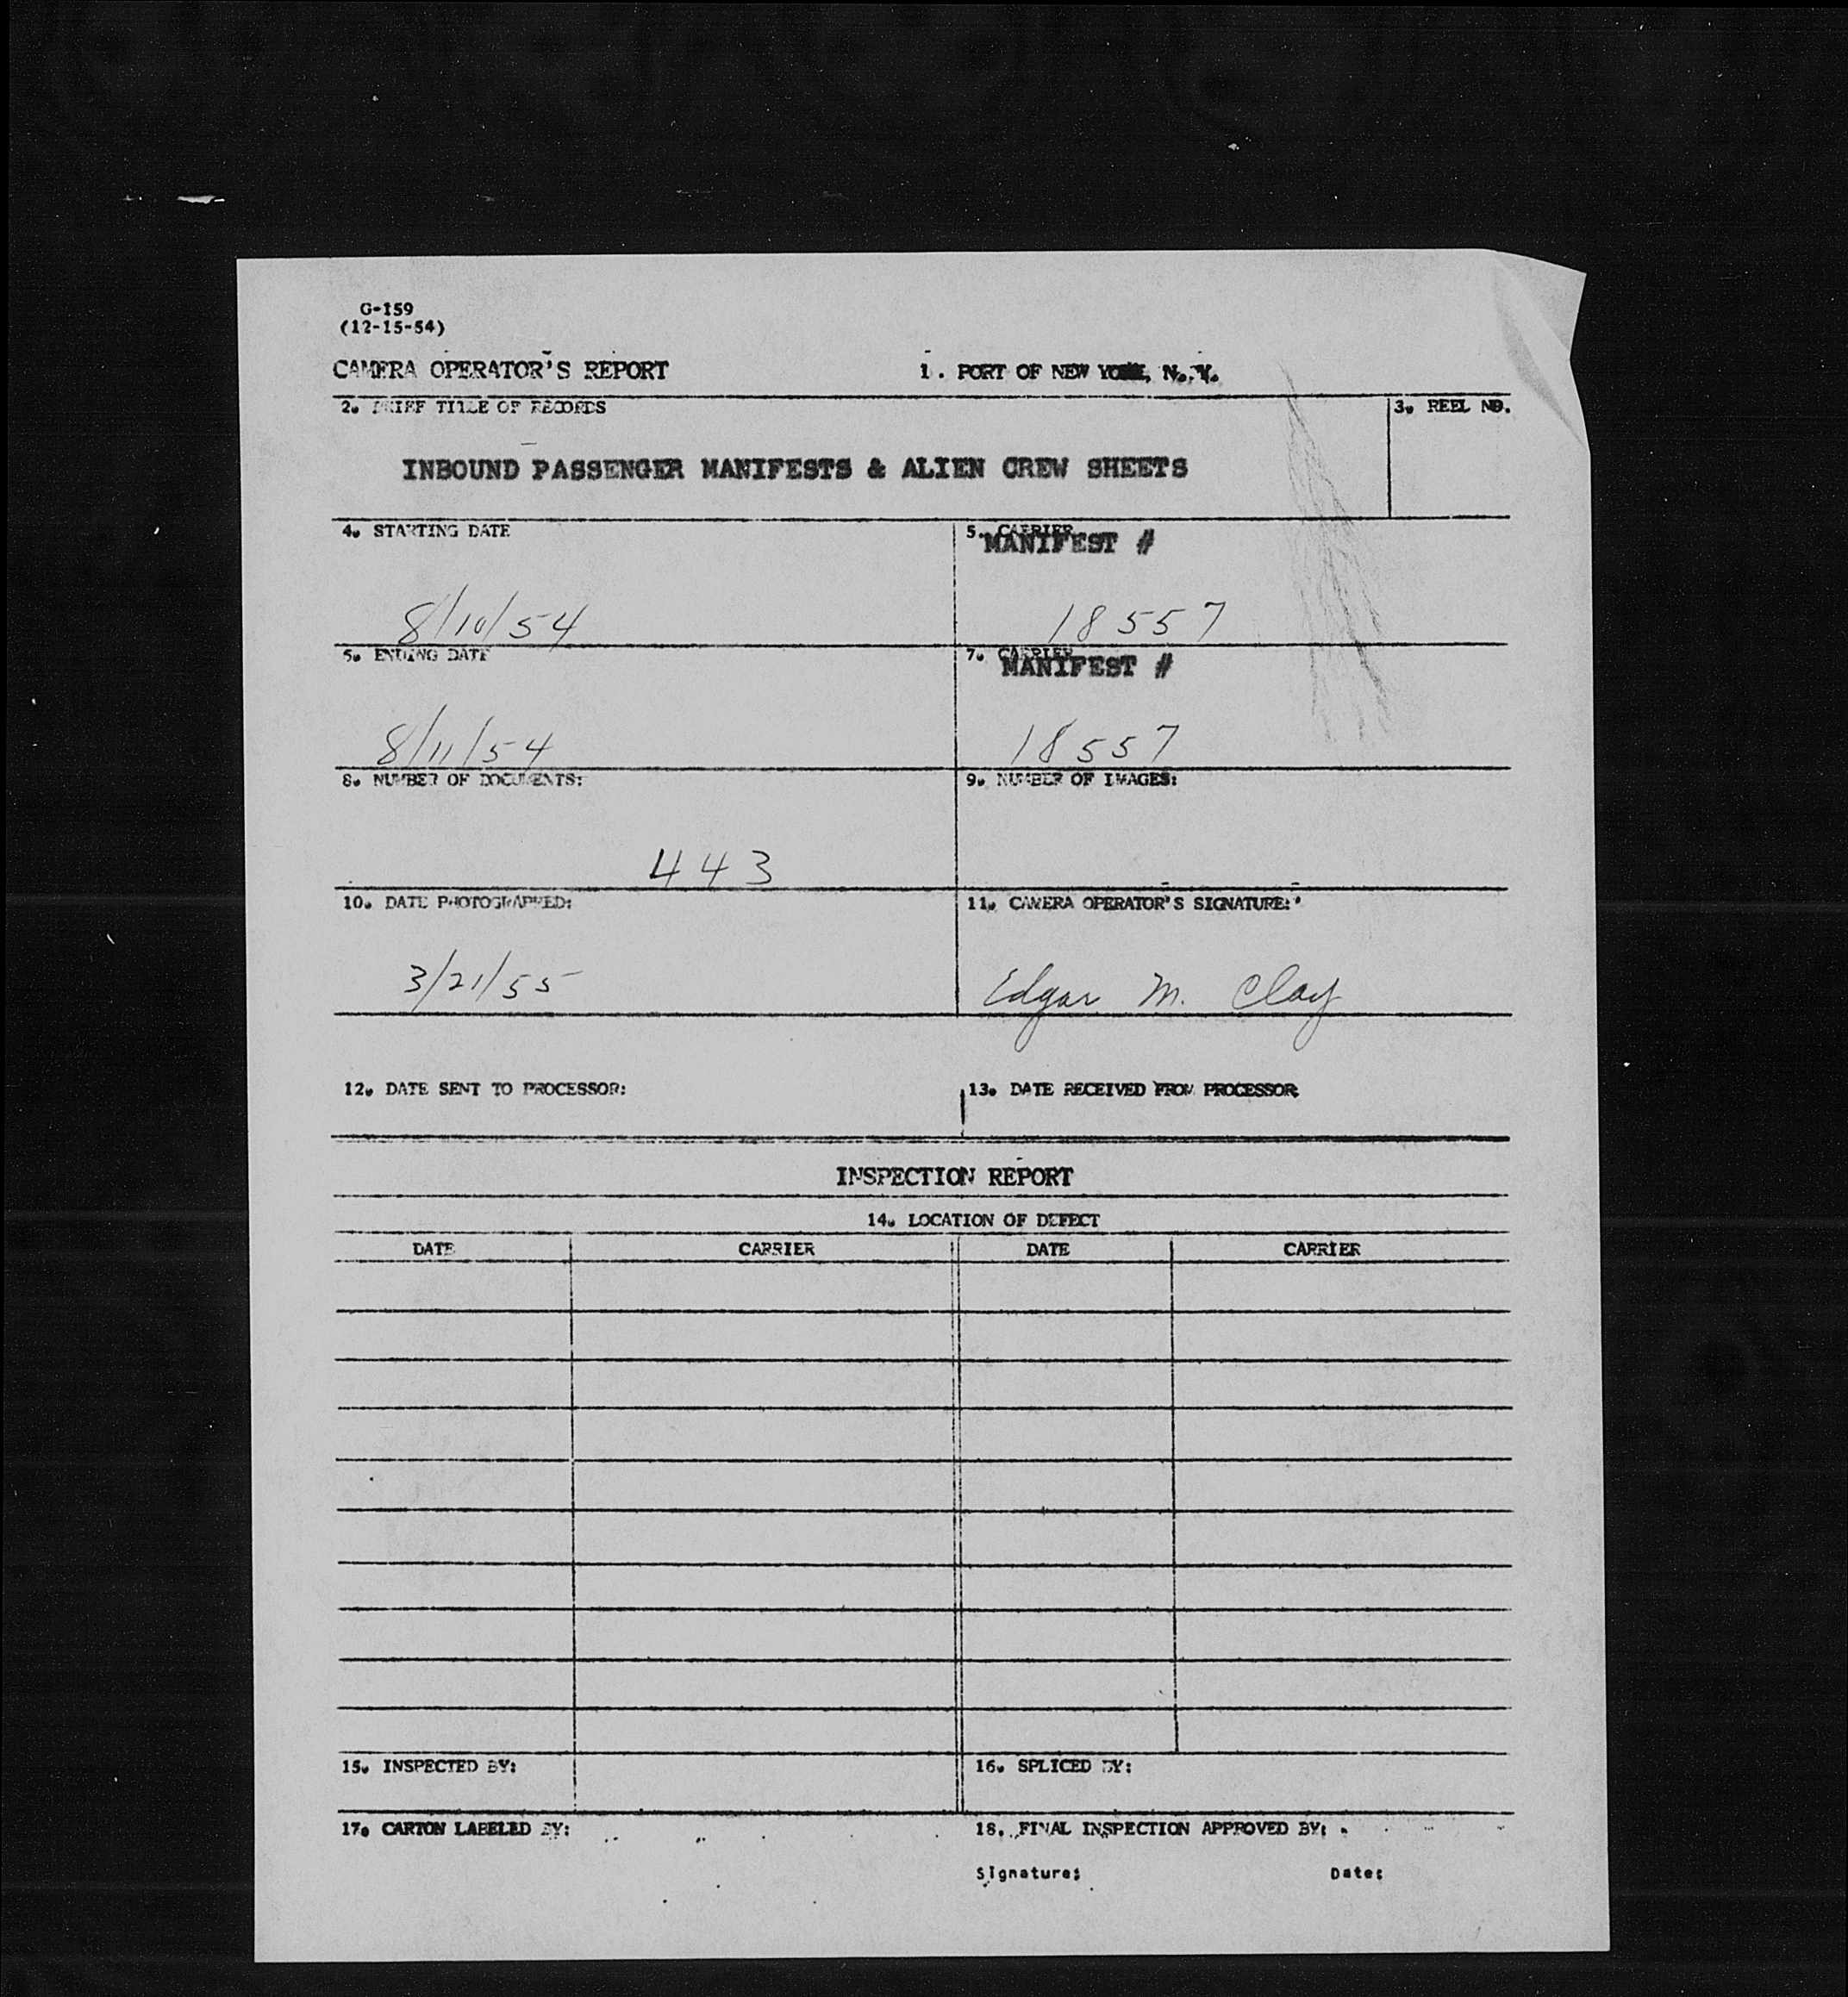 G-159
(12-15-54)
CAMERA OPERATOR'S REPORT 1. PORT OF NEW YORK, N.Y.
2. BRIEF TITLE OF RECORDS 3. REEL NO.
INBOUND PASSENGER MANIFESTS & ALIEN CREW SHEETS
4. STARTING DATE 5. CARRIER
MANIFEST #
8/10/54 18557
5. ENDING DATE 7. CARRIER
MANIFEST #
8/11/54 18557
8. NUMBER OF DOCUMENTS: 9. NUMBER OF IMAGES:
443
10. DATE PHOTOGRAPHED: 11. CAMERA OPERATOR'S SIGNATURE:
3/21/55 Edgar M. Clay
12. DATE SENT TO PROCESSOR: 13. DATE RECEIVED FROM PROCESSOR
INSPECTION REPORT
14. LOCATION OF DEFECT
DATE CARRIER DATE CARRIER
15. INSPECTED BY: 16. SPLICED BY:
17. CARTON LABELED BY: 18. FINAL INSPECTION APPROVED BY:
Signature: Date: